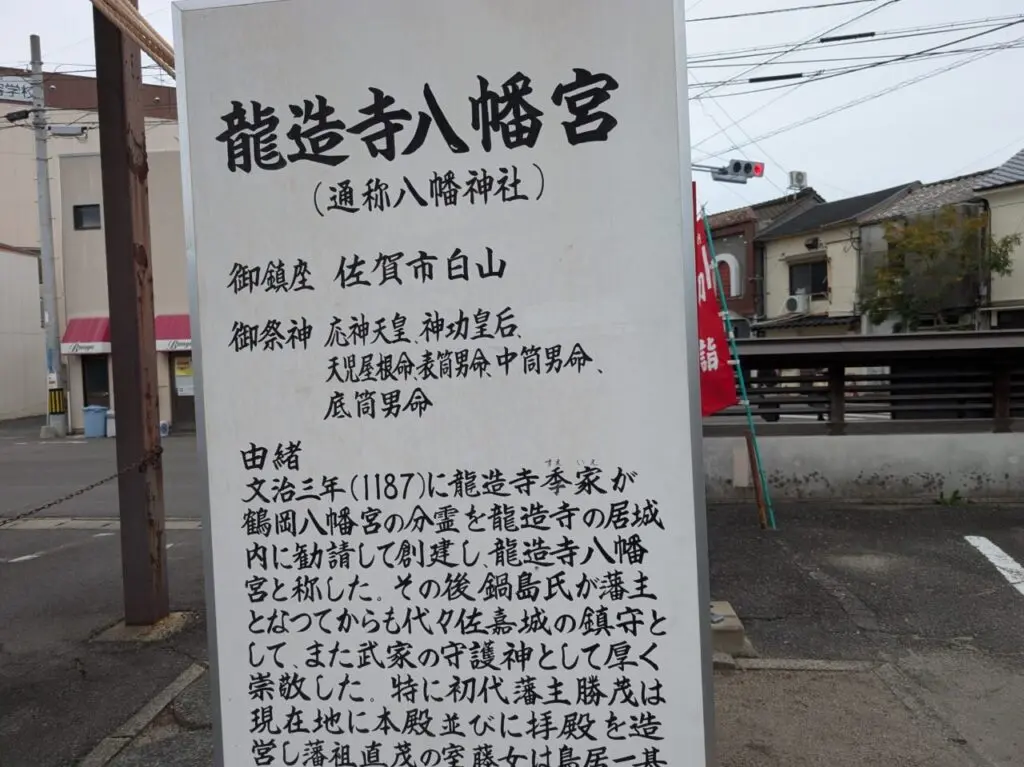 龍造寺八幡宮
(通称八幡神社)
御鎮座 佐賀市白山
御祭神 応神天皇、神功皇后、
天児屋根命、表筒男命、中筒男命、
底筒男命
由緒
すえ いえ
文治三年(1187)に龍造寺季家が
鶴岡八幡宮の分霊を龍造寺の居城
内に勧請して創建し、龍造寺八幡
宮と称した。その後鍋島氏が藩主
となつてからも代々佐嘉城の鎮守と
して、また武家の守護神として厚く
崇敬した。特に初代藩主勝茂は
現在地に本殿並びに拝殿を造
営し藩祖直茂の室藤女は鳥居一基
詣